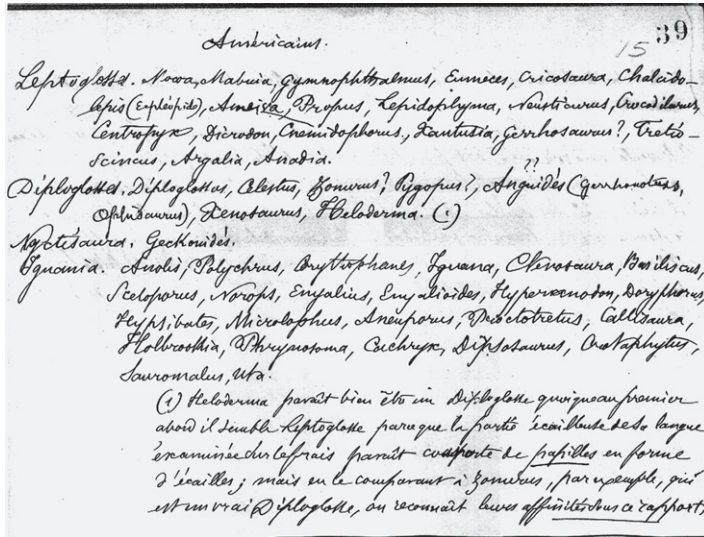 39
15
Américains.
Leptoglossa. Mocoa, Mabuia, Gymnophthalmus, Eumeces, Cricosaura, Chalcido-
lepis (Expléopide), Ameiva, Propus, Lepidophyma, Neusticurus, Crocodilurus,
Centropyx, Dicrodon, Cnemidophorus, Xantusia, Gerrhosaurus?, Tretio-
scincus, Argalia, Anadia.
??
Diploglossa. Diploglossus, Celestus, Zonurus? Pygopus?, Anguidés (Gerrhonotus,
Ophisaurus), Xenosaurus, Heloderma. (1)
Nyctisaura. Geckonidés.
Iguania. Anolis, Polychrus, Corythophanes, Iguana, Ctenosaura, Basiliscus,
Sceloporus, Norops, Enyalius, Enyalioides, Hyperanodon, Doryphorus,
Hypsibates, Microlophus, Aneuporus, Proctotretus, Callisaura,
Holbrookia, Phrynosoma, Cachryx, Dipsosaurus, Crotaphytus,
Sauromalus, Uta.
(1) Heloderma paraît bien être un Diploglosse quoique au premier
abord il semble Leptoglosse parce que la partie écailleuse de sa langue
examinée sur le frais paraît couverte de papilles en forme
d'écailles; mais en le comparant à Zonurus, par exemple, qui
est un vrai Diploglosse, on reconnaît leurs affinités sous ce rapport.